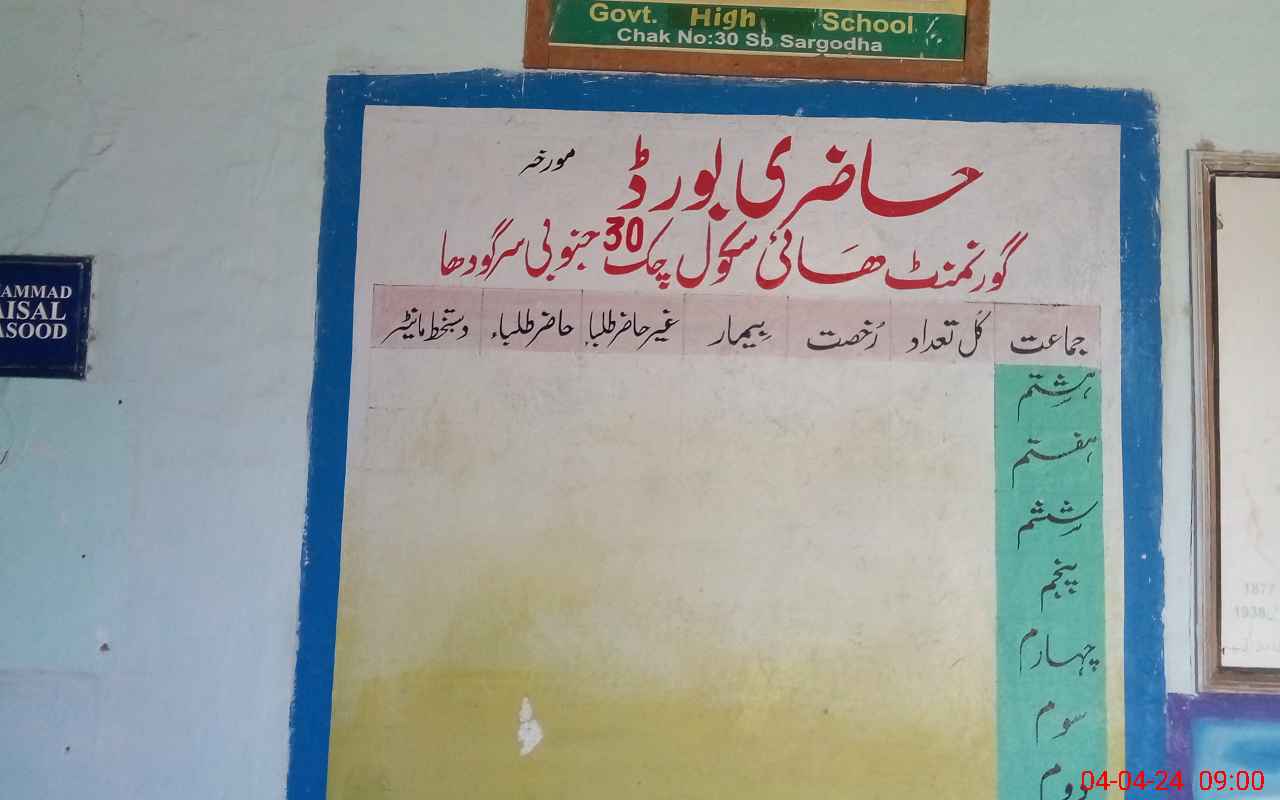 Govt. High School
Chak No:30 Sb Sargodha
حاضری بورڈ
مورخہ
گورنمنٹ ھائی سکول چک 30 جنوبی سرگودھا
جماعت کُل تعداد رُخصت بیمار غیر حاضر طلباء حاضر طلباء دستخط مانیٹر
ہشتم
ہفتم
ششم
پنجم
چہارم
سوم
دوم
AMMAD
AISAL
ASOOD
1877
1938
04-04-24 09:00